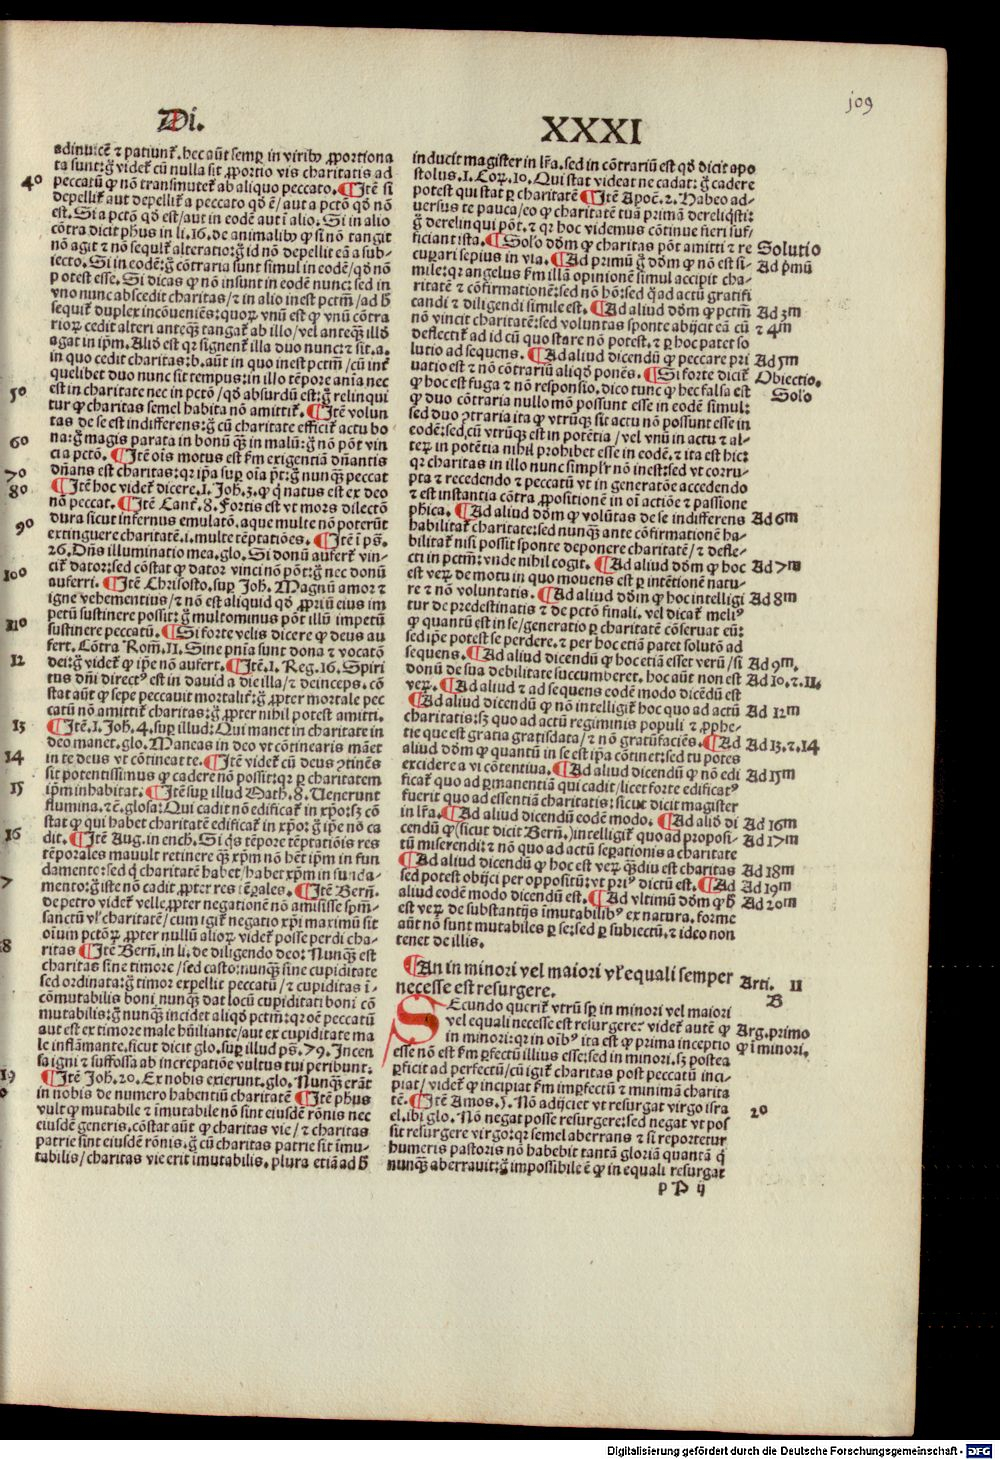 109
Di.
XXXI
adinuicē ⁊ patiunt᷑. hec aūt semꝑ in virib⁹ ꝓportiona
ta sunt: g̊ videt᷑ cū nulla sit ꝓportio vis charitatis ad
40
peccatū ꝙ nō transmutet᷑ ab aliquo peccato. ¶Itē si
depellit᷑ aut depellit᷑ a peccato qd̄ ē / aut a pctō qd̄ nō
est. Si a pctō qd̄ est / aut in eodē aut ī alio. Si in alio
cōtra dicit ph̄us in li. 16. de animalib⁹ ꝙ si nō tangit
nō agit ⁊ nō sequit᷑ alteratio: g̊ id nō depellit eā a sub-
iecto. Si in eodē: g̊ cōtraria sunt simul in eodē / qd̄ nō
potest esse. Si dicas ꝙ nō insunt in eodē nunc: sed in
vno nunc abscedit charitas / ⁊ in alio inest pctm̄ / ad h̄
sequit᷑ duplex incōueniēs: quoꝝ vnū est ꝙ vnū cōtra
rioꝝ cedit alteri anteq̄ʒ tangat᷑ ab illo / vel anteq̄ʒ illd̄
agat in ip̄m. Aliō est qr signent᷑ illa duo nunc: ⁊ sit .a.
in quo cedit charitas: b. aūt in quo inest pctm̄ / cū int᷑
quelibet duo nunc sit tempus: in illo tēpore aīa nec
50
est in charitate nec in pctō / qd̄ absurdū est: g̊ relinqui
tur ꝙ charitas semel habita nō amittit᷑. ¶Itē volun
tas de se est indifferens: g̊ cū charitate efficit᷑ actu bo
60
na: g̊ magis parata in bonū q̄ʒ in malū: g̊ nō pōt vin
ci a pctō. ¶Itē oīs motus est ẜm exigentiā dn̄antis
70
dn̄ans est charitas: qr ip̄a suꝑ oīa p̄t: g̊ nunq̄ʒ peccat
80
¶Itē hoc videt᷑ dicere. 1. Joh. 3. ꝙ q̇ natus est ex deo
nō peccat. ¶Itē Cant᷑. 8. Fortis est vt mors dilectō
90
dura sicut infernus emulatō. aque multe nō poterūt
extinguere charitatē. i. multe tēptatiōes. ¶Itē ī ps̄.
26. Dn̄s illuminatio mea. glo. Si donū aufert᷑ vin-
cit᷑ dator: sed cōstat ꝙ dator vinci nō pōt: g̊ nec donū
100
auferri. ¶Itē Chrisosto. suꝑ Joh. Magnū amor ⁊
igne vehementius / ⁊ nō est aliquid qd̄ ꝓpriū eius im
petū sustinere possit: g̊ multominus pōt illū impetū
110
sustinere peccatū. ¶Si forte velis dicere ꝙ deus au
fert. Cōtra Rom̄. 11. Sine pn̄ia sunt dona ⁊ vocatō
12
dei: g̊ videt᷑ ꝙ ip̄e nō aufert. ¶Itē. 1. Reg. 16. Spiri
tus dn̄i direct⁹ est in dauid a die illa / ⁊ deinceps. cō
stat aūt ꝙ sepe peccauit mortalit᷑: g̊ ꝓpter mortale pec
catū nō amittit᷑ charitas: g̊ ꝓpter nihil potest amitti.
13
¶Itē. 1. Joh. 4. suꝑ illud: Qui manet in charitate in
deo manet. glo. Maneas in deo vt cōtinearis māet
14
in te deus vt cōtineat te. ¶Itē videt᷑ cū deus ꝯtinēs
sit potentissimus ꝙ cadere nō possit: qr ꝑ charitatem
15
ip̄m inhabitat. ¶Itē suꝑ illud Math. 8. Venerunt
flumina. ⁊ē. glosa: Qui cadit nō edificat᷑ in xp̄o: sʒ cō
stat ꝙ qui habet charitatē edificat᷑ in xp̄o: g̊ ip̄e nō ca
16
dit. ¶Itē Aug. in ench. Si q̇s tēpore tēptatiōis res
tēporales mauult retinere q̄ʒ xp̄m nō hēt ip̄m in fun
damento: sed q̇ charitatē habet / habet xp̄m in funda-
7
mento: g̊ iste nō cadit ꝓpter res tēꝑales. ¶Itē Bern̄.
de petro videt᷑ velle ꝓpter negationē nō amisisse sp̄m-
sanctū vł charitatē / cum igit᷑ negatio xp̄i maximū sit
oīum pctōꝝ ꝓpter nullū alioꝝ videt᷑ posse perdi cha-
8
ritas ¶Itē Bern̄. in li. de diligendo deo: Nunq̄ʒ est
charitas sine timore / sed casto: nunq̄ʒ sine cupiditate
sed ordinata: g̊ timor expellit peccatū / ⁊ cupiditas ī-
cōmutabilis boni nunq̄ʒ dat locū cupiditati boni cō
mutabilis: g̊ nunq̄ʒ incidet aliqd̄ pctm̄: qr oē peccatū
aut est ex timore male hūiliante / aut ex cupiditate ma
le inflāmante. sicut dicit glo. suꝑ illud ps̄. 79. Incen
sa igni ⁊ suffossa ab increpatiōe vultus tui peribunt:
19
¶Itē Joh. 20. Ex nobis exierunt. glo. Nunq̄ʒ erāt
in nobis de numero habentiū charitatē ¶Itē phus
vult ꝙ mutabile ⁊ īmutabile nō sint eiusdē rōnis nec
eiusdē generis. cōstat aūt ꝙ charitas vie / ⁊ charitas
patrie sint eiusdē rōnis. g̊ cū charitas patrie sit īmu-
tabilis / charitas vie erit īmutabilis. plura etiā ad h̄
inducit magister in lr̄a. sed in cōtrariū est qd̄ dicit apo
stolus. 1. Coꝝ. 10. Qui stat videat ne cadat: g̊ cadere
potest qui stat ꝑ charitatē ¶Itē Apoc̄. 2. Habeo ad-
uersus te pauca / eo ꝙ charitatē tuā primā dereliq̇sti:
g̊ derelinqui pōt. ⁊ qr hoc videmus cōtinue fieri suf-
ficiant ista. ¶Sol̄o dōm ꝙ charitas pōt amitti ⁊ re
Solutio
cuꝑari sepius in via. ¶Ad primū g̊ dōm ꝙ nō est si-
Ad p̄mū
mile: qr angelus ẜm illā opinionē simul accipit cha-
ritatē ⁊ cōfirmationē: sed nō hō: sed q̊ad actū gratifi
candi ⁊ diligendi simile est. ¶Ad aliud dōm ꝙ pctm̄
Ad 3m
nō vincit charitatē: sed voluntas sponte abijcit eā cū
⁊ 4m
deflectit᷑ ad id cū quo stare nō potest. ⁊ ꝑ hoc patet so
lutio ad sequens. ¶Ad aliud dicendū ꝙ peccare pri
Ad 5m
uatio est ⁊ nō cōtrariū aliqd̄ ponēs. ¶Si forte dicit᷑
Obiectio.
ꝙ hoc est fuga ⁊ nō responsio. dico tunc ꝙ hec falsa est
Sol̄o
ꝙ duo cōtraria nullo mō possunt esse in eodē simul:
sed duo ꝯtraria ita ꝙ vtrūq̄ʒ sit actu nō possunt esse in
eodē: sed cū vtrūq̄ʒ est in potētia / vel vnū in actu ⁊ al-
teꝝ in potētia nihil prohibet esse in eodē. ⁊ ita est hic:
qr charitas in illo nunc simplr̄ nō inest: sed vt corru-
pta ⁊ recedendo ⁊ peccatū vt in generatōe accedendo
⁊ est instantia cōtra ꝓpositionē in oī actiōe ⁊ passione
phica. ¶Ad aliud dōm ꝙ volūtas de se indifferens
Ad 6m
habilitat᷑ charitate: sed nunq̄ʒ ante cōfirmationē ha-
bilitat᷑ nisi possit sponte deponere charitatē / ⁊ defle-
cti in pctm̄: vnde nihil cogit. ¶Ad aliud dōm ꝙ hoc
Ad 7m
est veꝝ de motu in quo mouens est ꝑ intētionē natu-
re ⁊ nō voluntatis. ¶Ad aliud dōm ꝙ hoc intelligi
Ad 8m
tur de predestinatis ⁊ de pctō finali. vel dicat᷑ meli⁹
ꝙ quantū est in se / generatio ꝑ charitatē cōseruat eū:
sed ip̄e potest se perdere. ⁊ per hoc etiā patet solutō ad
sequens. ¶Ad aliud dicendū ꝙ hoc etiā esset verū / si
Ad 9m.
donū de sua debilitate succumberet. hoc aūt non est
Ad 10. ⁊. 11.
veꝝ. ¶Ad aliud ⁊ ad sequens eodē modo dicēdū est
¶Ad aliud dicendū ꝙ nō intelligit᷑ hoc quo ad actū
Ad 12m
charitatis: sʒ quo ad actū regiminis populi ⁊ ꝓphe-
tie que est gratia gratisdata / ⁊ nō gratūfaciēs. ¶Ad
Ad 13. ⁊. 14
aliud dōm ꝙ quantū in se est ip̄a cōtinet: sed tu potes
excidere a vi cōtentiua. ¶Ad aliud dicendū ꝙ nō edi
Ad 15m
ficat᷑ quo ad ꝑmanentiā qui cadit / licet forte edificat⁹
fuerit quo ad essentiā charitatis: sicut dicit magister
in lr̄a. ¶Ad aliud dicendū eodē modo. ¶Ad aliō di
Ad 16m
cendū ꝙ (sicut dicit Bern̄.) intelligit᷑ quo ad proposi-
Ad 17m
tū miserendi: ⁊ nō quo ad actū seꝑationis a charitate
¶Ad aliud dicendū ꝙ hoc est veꝝ q̄ʒdiu est charitas
Ad 18m
sed potest obijci per oppositū: vt pri⁹ dictū est. ¶Ad
Ad 19m
aliud eodē modo dicendū est. ¶Ad vltimū dōm ꝙ h̄
Ad 20m
est veꝝ de substantijs īmutabilib⁹ ex natura. forme
aūt nō sunt mutabiles ꝑ se: sed ꝑ subiectū. ⁊ ideo non
tenet de illis.
¶An in minori vel maiori vł equali semper
Arti. II
necesse est resurgere.
B
SEcundo querit᷑ vtrū sꝑ in minori vel maiori
vel equali necesse est resurgere: videt᷑ autē ꝙ
Arg. primo
in minori: qr in oīb⁹ ita est ꝙ prima inceptio
ꝙ ī minori.
esse nō est ẜm ꝑfectū illius esse: sed in minori. sʒ postea
ꝑficit ad perfectū / cū igit᷑ charitas post peccatū inci-
piat / videt᷑ ꝙ incipiat ẜm imꝑfectū ⁊ minimā charita
tē. ¶Itē Amos. 5. Nō adijciet vt resurgat virgo isra
20
el. ibi glo. Nō negat posse resurgere: sed negat vt pos
sit resurgere virgo: qr semel aberrans ⁊ si reportetur
humeris pastoris nō habebit tantā gloriā quantā q̇
nunq̄ʒ aberrauit: g̊ impossibile ē ꝙ in equali resurgat
p P ij
Digitalisierung gefördert durch die Deutsche Forschungsgemeinschaft - DFG